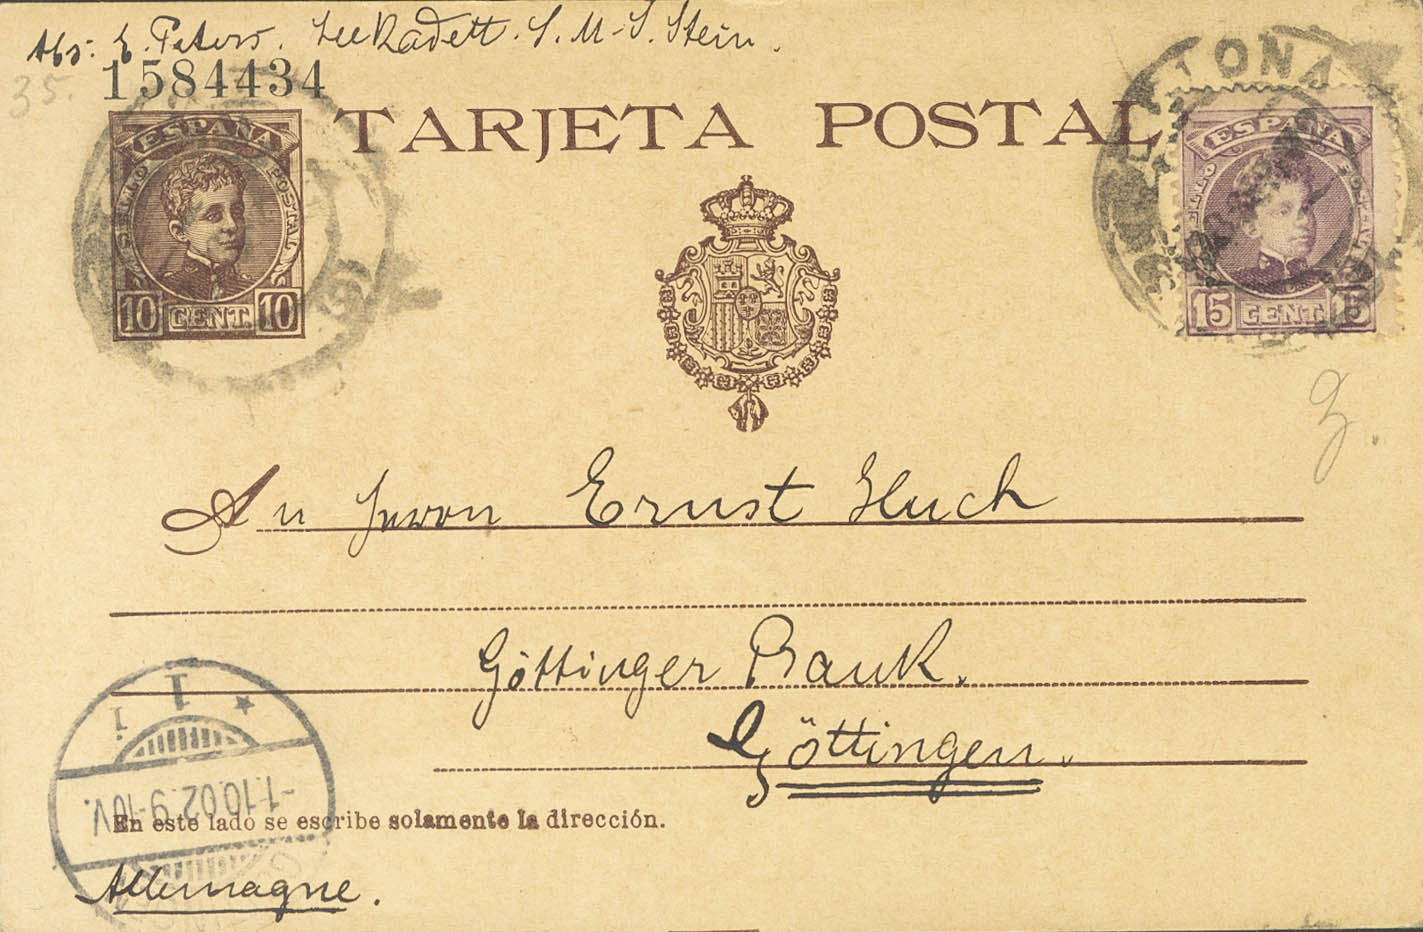 Abs: E. Peters. Seekadett. S.M.S. Stein.
35.
1584434
TARJETA POSTAL
ESPAÑA
SELLO POSTAL
10 CENT. 10
ESPAÑA
15 CENT. 15
An Herrn Ernst Huch
Göttinger Bank.
Göttingen.
1.10.02.9-10V.
En este lado se escribe solamente la dirección.
Allemagne.